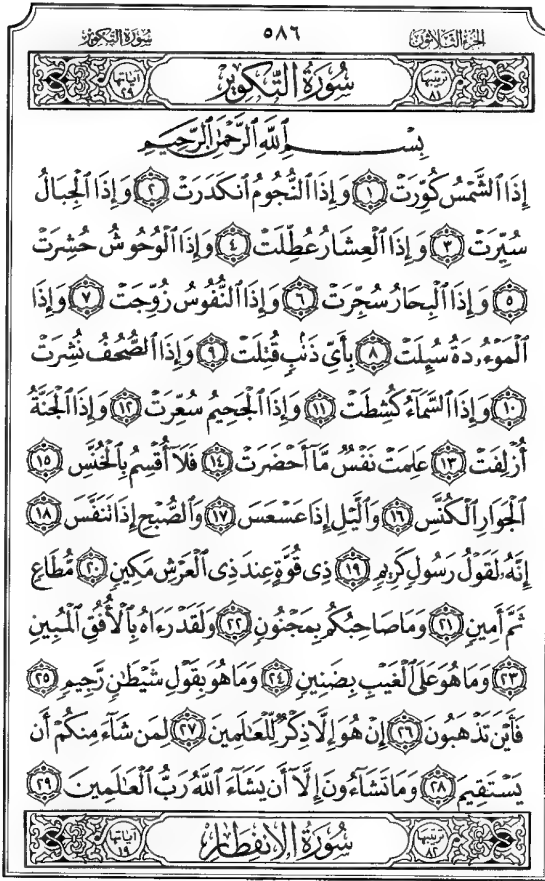 الجزء الثلاثون ٥٨٦ سورة التكوير
ترتيبها ٨١ سُورَةُ التَّكْوِيرِ آياتها ٢٩
بِسْمِ اللَّهِ الرَّحْمَٰنِ الرَّحِيمِ
إِذَا الشَّمْسُ كُوِّرَتْ ١ وَإِذَا النُّجُومُ انكَدَرَتْ ٢ وَإِذَا الْجِبَالُ
سُيِّرَتْ ٣ وَإِذَا الْعِشَارُ عُطِّلَتْ ٤ وَإِذَا الْوُحُوشُ حُشِرَتْ
٥ وَإِذَا الْبِحَارُ سُجِّرَتْ ٦ وَإِذَا النُّفُوسُ زُوِّجَتْ ٧ وَإِذَا
الْمَوْءُۥدَةُ سُئِلَتْ ٨ بِأَيِّ ذَنبٍ قُتِلَتْ ٩ وَإِذَا الصُّحُفُ نُشِرَتْ
١٠ وَإِذَا السَّمَآءُ كُشِطَتْ ١١ وَإِذَا الْجَحِيمُ سُعِّرَتْ ١٢ وَإِذَا الْجَنَّةُ
أُزْلِفَتْ ١٣ عَلِمَتْ نَفْسٌ مَّآ أَحْضَرَتْ ١٤ فَلَآ أُقْسِمُ بِالْخُنَّسِ ١٥
الْجَوَارِ الْكُنَّسِ ١٦ وَالَّيْلِ إِذَا عَسْعَسَ ١٧ وَالصُّبْحِ إِذَا تَنَفَّسَ ١٨
إِنَّهُۥ لَقَوْلُ رَسُولٍ كَرِيمٍ ١٩ ذِى قُوَّةٍ عِندَ ذِى الْعَرْشِ مَكِينٍ ٢٠ مُّطَاعٍ
ثَمَّ أَمِينٍ ٢١ وَمَا صَاحِبُكُم بِمَجْنُونٍ ٢٢ وَلَقَدْ رَءَاهُ بِالْأُفُقِ الْمُبِينِ
٢٣ وَمَا هُوَ عَلَى الْغَيْبِ بِضَنِينٍ ٢٤ وَمَا هُوَ بِقَوْلِ شَيْطَٰنٍ رَّجِيمٍ ٢٥
فَأَيْنَ تَذْهَبُونَ ٢٦ إِنْ هُوَ إِلَّا ذِكْرٌ لِّلْعَٰلَمِينَ ٢٧ لِمَن شَآءَ مِنكُمْ أَن
يَسْتَقِيمَ ٢٨ وَمَا تَشَآءُونَ إِلَّآ أَن يَشَآءَ اللَّهُ رَبُّ الْعَٰلَمِينَ ٢٩
ترتيبها ٨٢ سُورَةُ الِانفِطَارِ آياتها ١٩